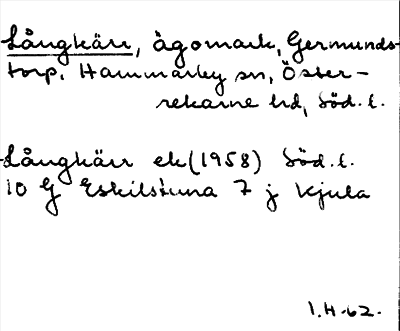 Långkärr, ägomark, Germunds-
torp, Hammarby sn, Öster-
rekarne hd, Söd. l.
Långkärr ek (1958) Söd. l.
10 G Eskilstuna 7 j Kjula
1.H.62.